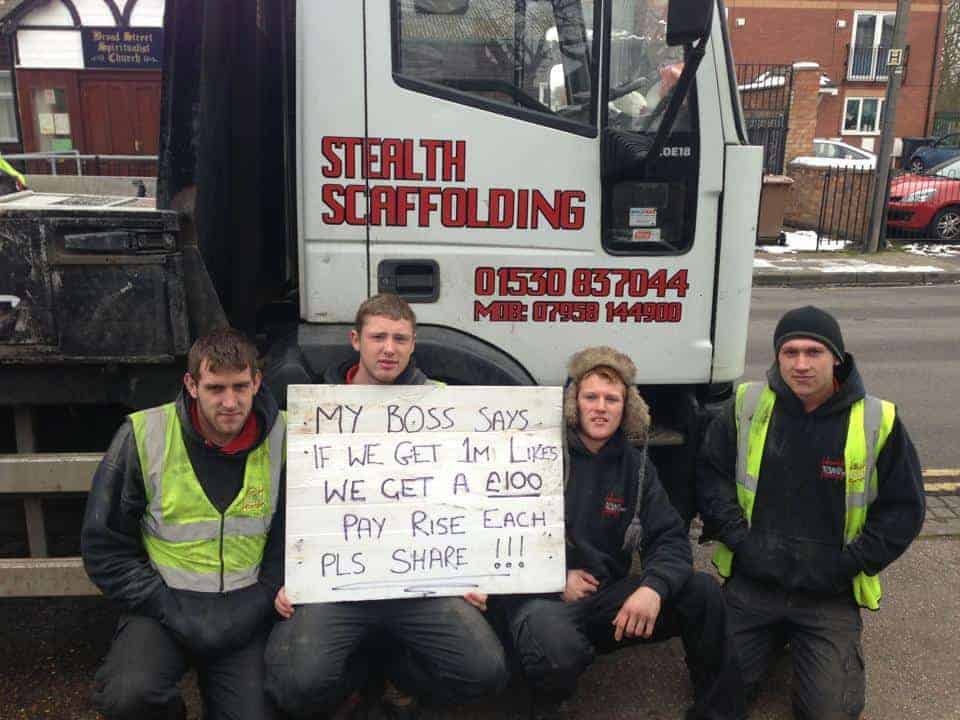 Broad Street
Spiritualist
Church
STEALTH
SCAFFOLDING
01530 837044
MOB: 07958 144900
MY BOSS SAYS
IF WE GET 1M LIKES
WE GET A £100
PAY RISE EACH
PLS SHARE !!!